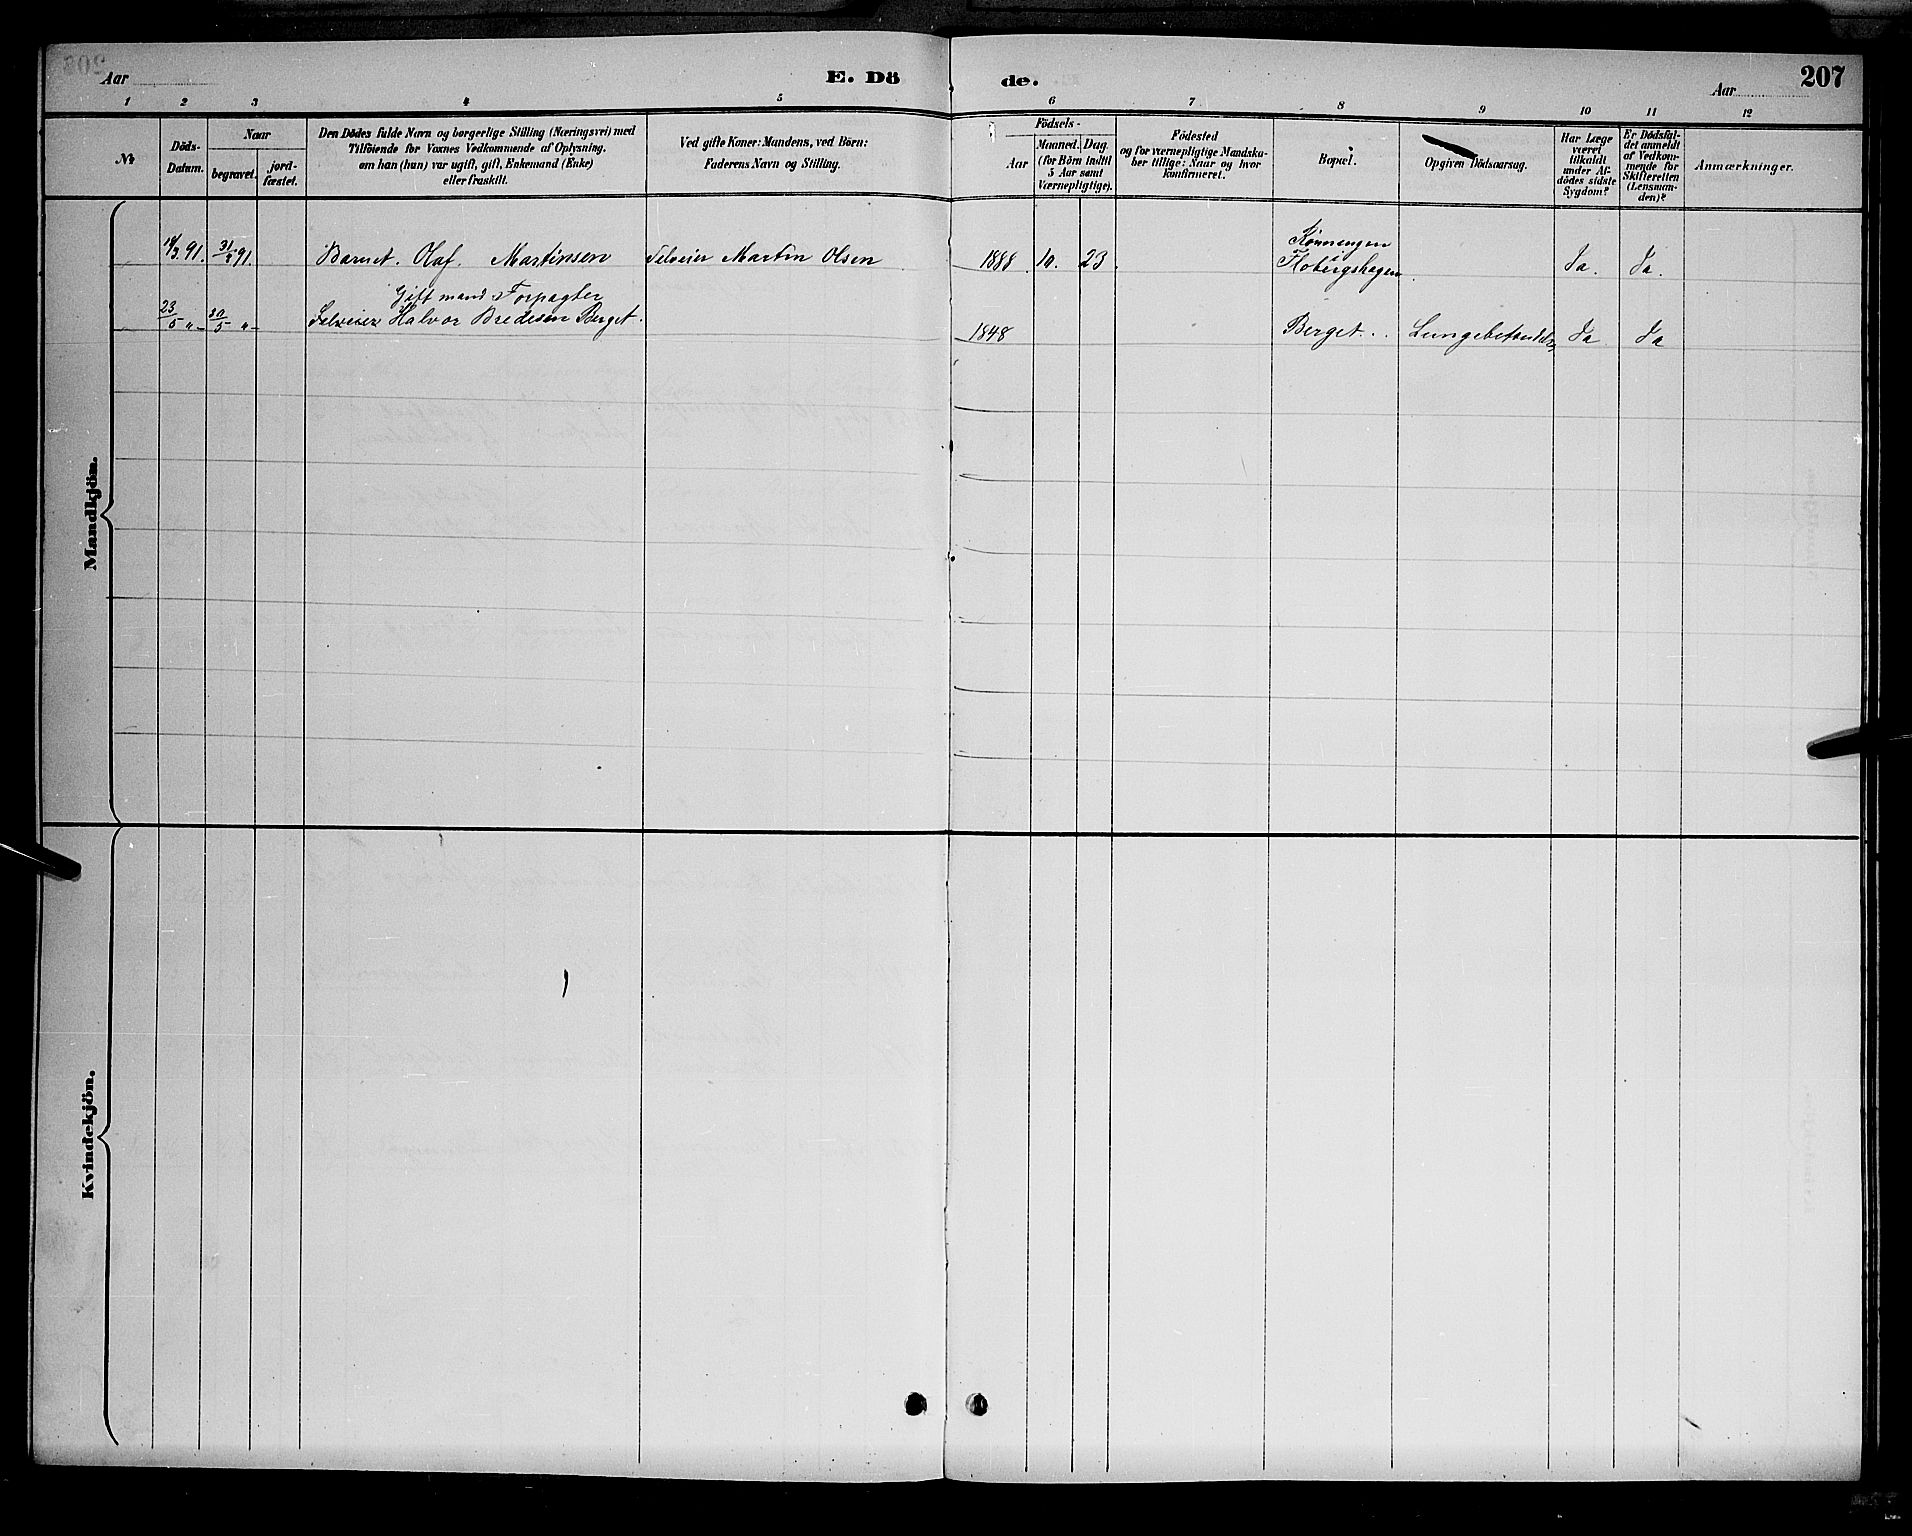 Aar
E. Dö
de.
Aar
207
1 2 3 4 5 6 7 8 9 10 11 12
№
Döds-
Datum.
Naar
begravet.
jord-
fæstet.
Den Dödes fulde Navn og borgerlige Stilling (Næringsvei) med
Tilföiende for Voxnes Vedkommende af Oplysning,
om han (hun) var ugift, gift, Enkemand (Enke)
eller fraskilt.
Ved gifte Koner: Mandens, ved Börn:
Faderens Navn og Stilling.
Födsels-
Aar
Maaned. Dag.
(for Börn indtil
5 Aar samt
Værnepligtige).
Födested
og for værnepligtige Mandska-
ber tillige: Naar og hvor
konfirmeret.
Bopæl.
Opgiven Dödsaarsag.
Har Læge
været
tilkaldt
under Af-
dödes sidste
Sygdom?
Er Dödsfal-
det anmeldt
af Vedkom-
mende for
Skifteretten
(Lensman-
den)?
Anmærkninger.
Mandkjön.
91. 91. Barnet. Olaf. Martinsen Selveier Martin Olsen 1888 10. 23. Ja. Ja.
Gift mand Forpagter
23/5 "- 30/5 "- Selveier Halvor Bredesen Berget. 1848 Berget. Ja Ja
Kvindekjön.